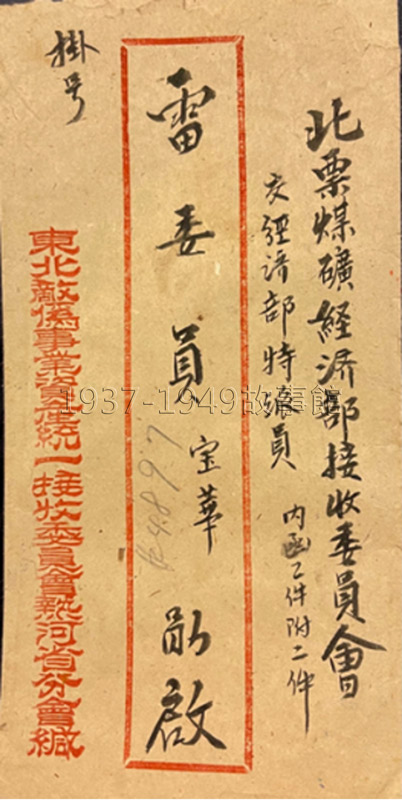 北票煤礦経済部接收委員會
交經済部特派員
内函乙件附二件
雷委員宝華勛啟
掛号
東北敵偽事業資產統一接收委員會熱河省分會緘
1937-1949故事館
4897